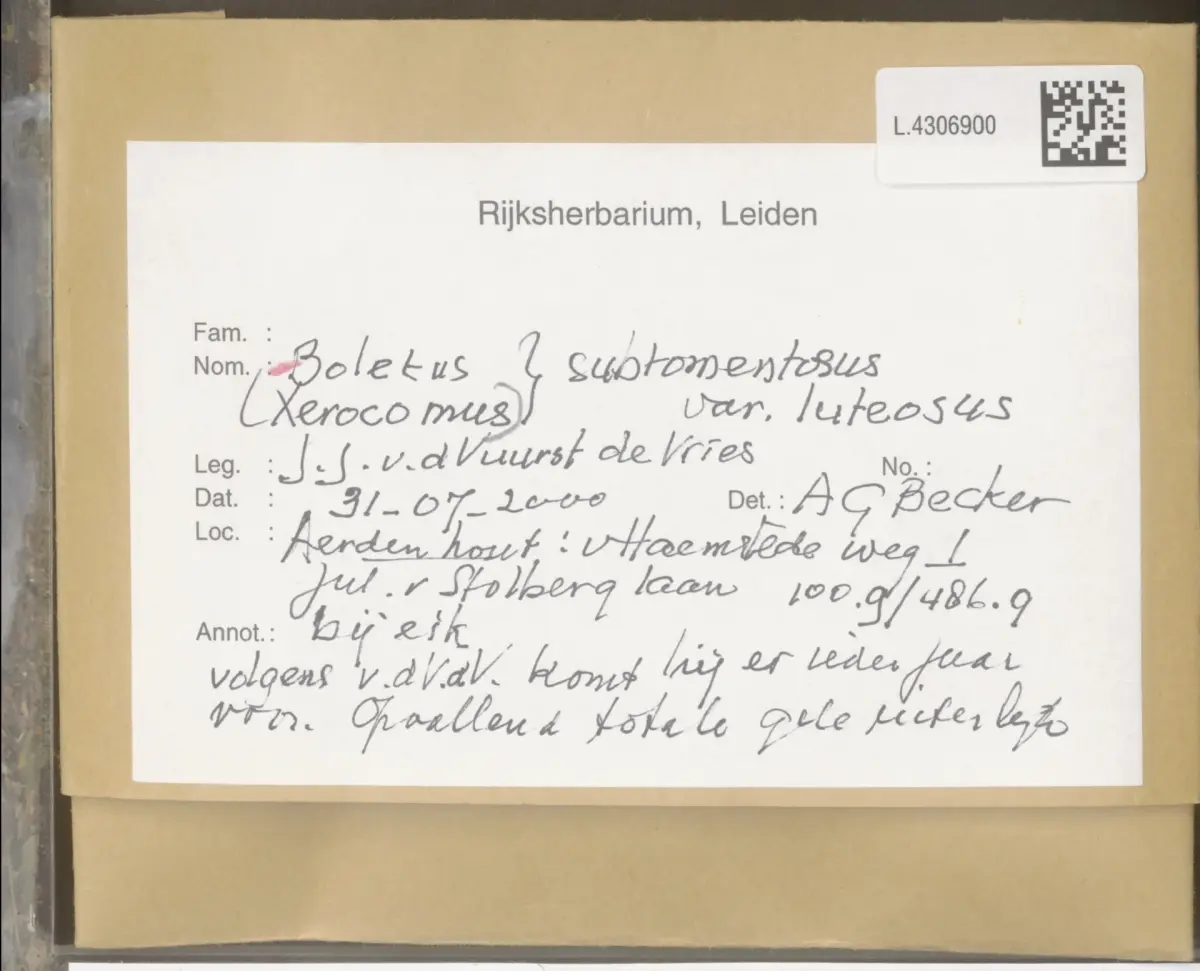 L.4306900
Rijksherbarium, Leiden
Fam. :
Nom. : Boletus } subtomentosus
(Xerocomus) var. luteosus
Leg. : J.J. v. d Vuurst de Vries No. :
Dat. : 31-07-2000 Det. : A G Becker
Loc. : Aerdenhout : v Haemstede weg 1
Jul. v Stolberg laan 100.9/486.9
Annot. : bij eik
volgens v.dV.dV. komt hij er ieder jaar
voor. Opvallend totale gele